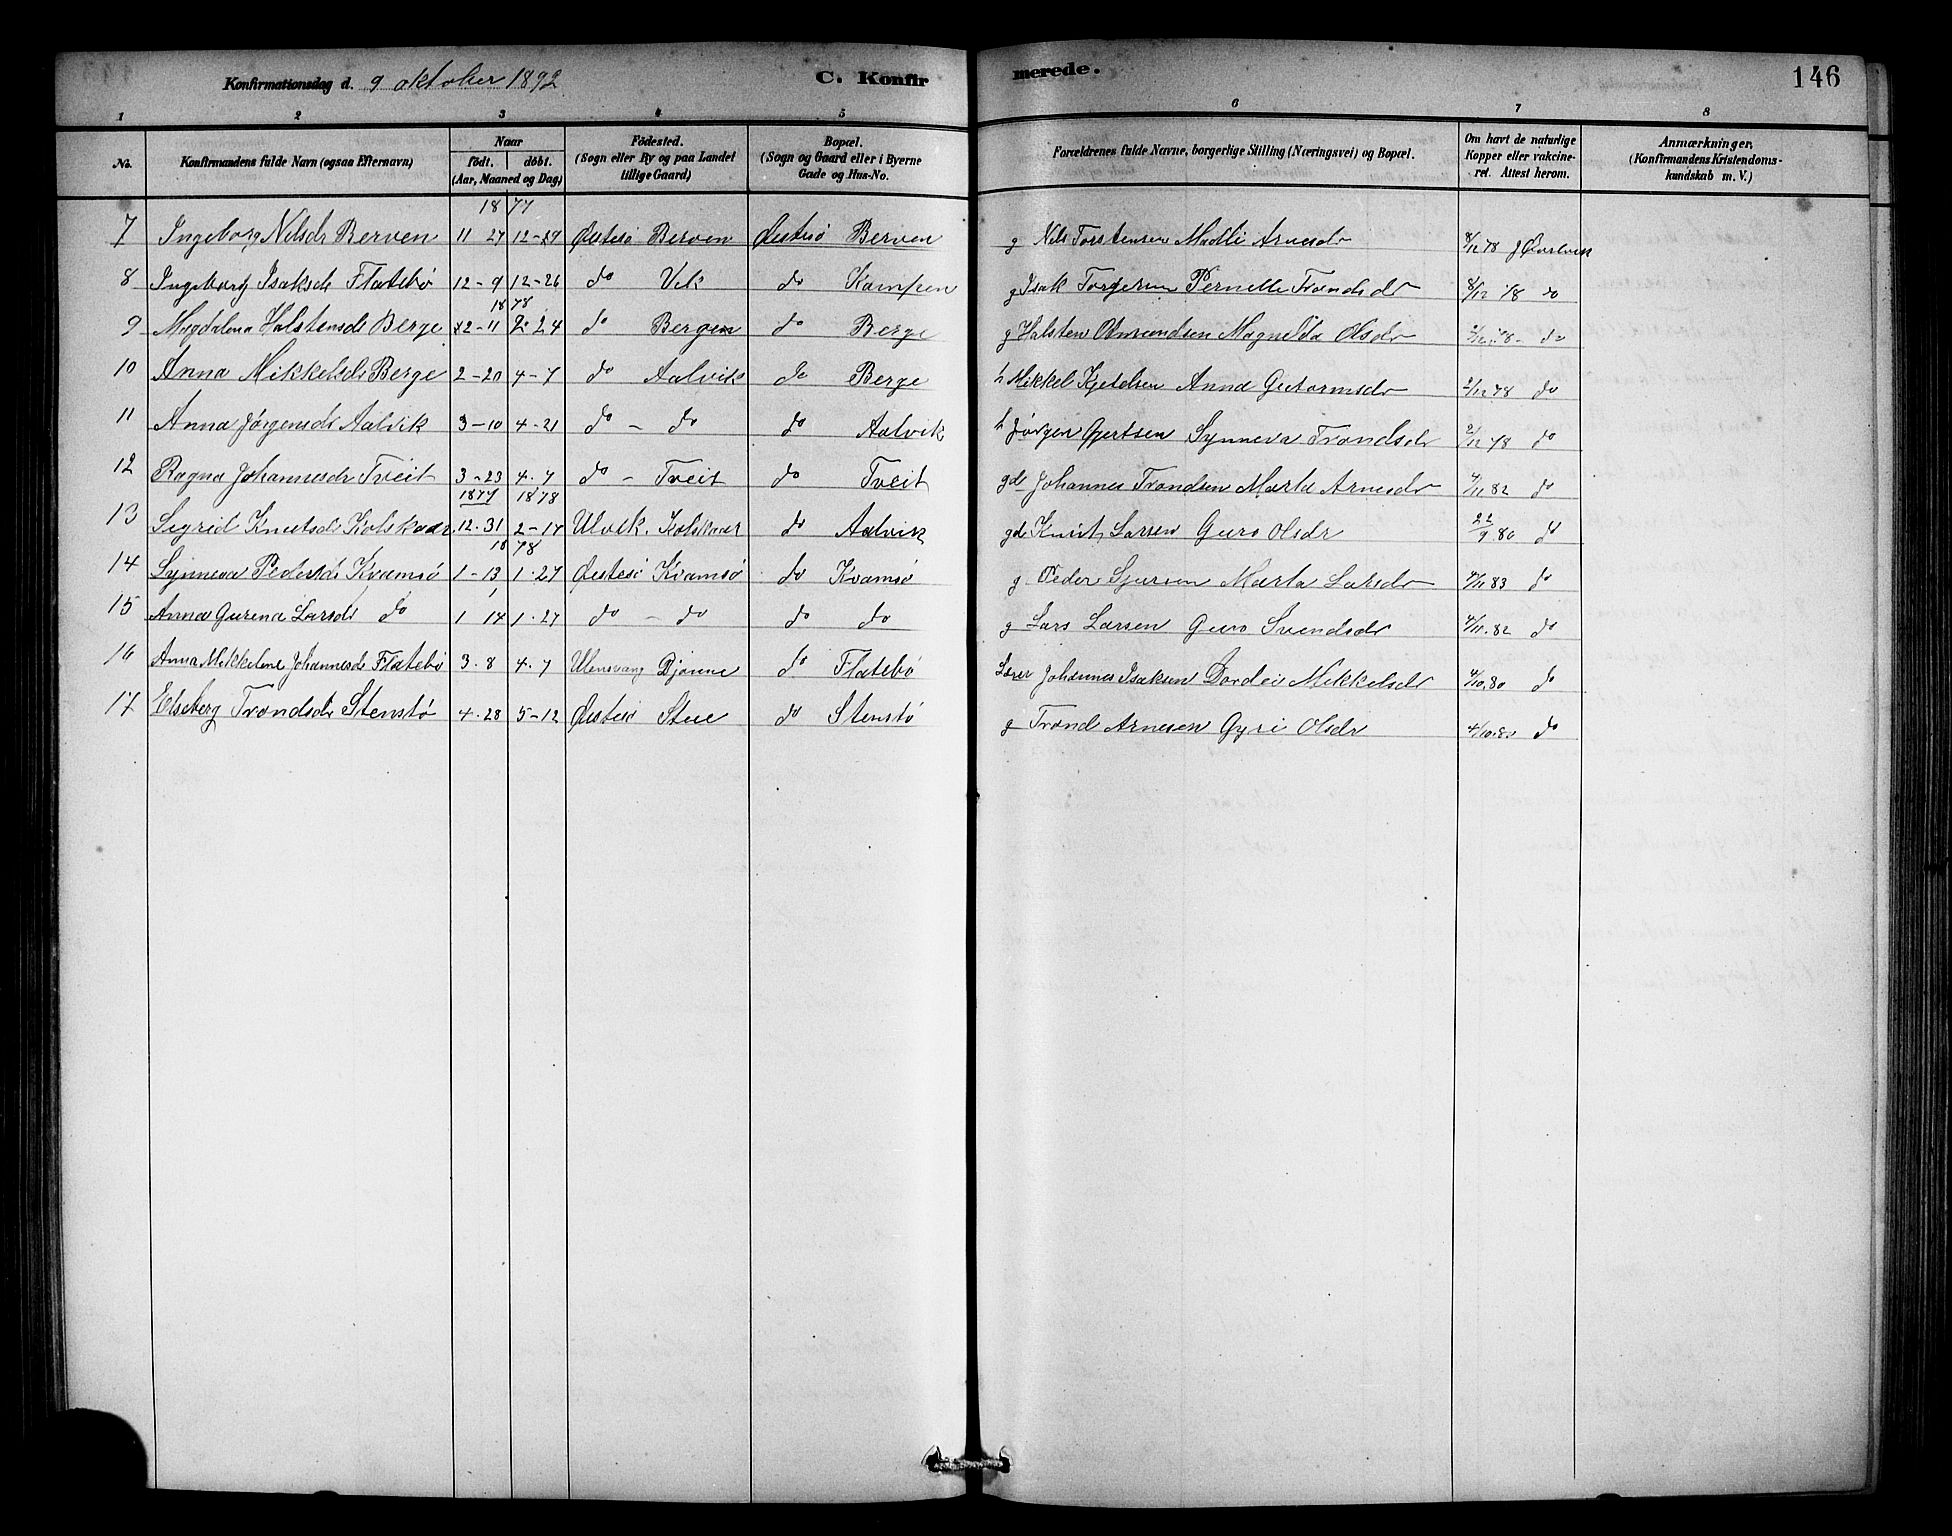 Konfirmationsdag d. 9 oktober 1892 C. Konfirmerede. 146
1 2 3 4 5 6 7 8
No. Konfirmandens fulde Navn (ogsaa Efternavn) Naar födt. döbt. (Aar, Maaned og Dag) Födested. (Sogn eller By og paa Landet tillige Gaard) Bopæl. (Sogn og Gaard eller i Byerne Gade og Hus-No. Forældrenes fulde Navne, borgerlige Stilling (Næringsvei) og Bopæl. Om havt de naturlige Kopper eller vakcineret. Attest herom. Anmærkninger, (Konfirmandens Kristendomskundskab m. V.)
1877
7 Ingeborg Nilsdr Berven 11 27 12-29 Østesö Berven Østesö Berven g Nils Torstensen Madli Arnesdr 8/12 78
8 Ingeborg Isaksdr Flatebö 12-9 12-26 do Vik do Kampen g Isak Torgersen Pernille Trondsdr 8/12 78 do
1878
9 Magdalena Halstensdr Berge 2-11 2-24 do Bergen do Berge g Halsten Osmundsen Magnilda Olsdr do
10 Anna Mikkelsdr Berge 2-20 4-7 do Aalvik do Berge h Mikkel Kjetelsen Anna Gutormsdr 2/12 78 do
11 Anna Jörgensdr Aalvik 3-10 4-21 do - do do Aalvik h Jörgen Gjertsen Synneva Trondsdr 2/12 78 do
12 Ragna Johannesdr Tveit 3-23 4-7 do - Tveit do Tveit gde Johannes Trondsen Marta Arnesdr 4/11 82 do
1877 1878
13 Sigrid Knutsdr Kolskaar 12-31 2-17 Ulvik Kolskaar do Aalvik gde Knut Larsen Guro Olsdr 22/9 80 do
1878
14 Synneva Pedersdr Kvamsö 1-13 1-27 Østesö Kvamsö do Kvamsö g Peder Sjursen Marta Larsdr 4/11 83 do
15 Anna Gurena Larsdr do 1 14 1-27 do - do do do g Lars Larsen Guro Svendsdr 4/11 82 do
16 Anna Mikkeline Johannesdr Flatebö 3-8 4-7 Ulensvang Djönne do Flatebö Lærer Johannes Isaksen Dordei Mikkelsdr 4/10 80 do
17 Elseberg Trondsdr Stenstö 4-28 5-12 Østesö Steie do Stenstö g Trond Arnesen Gyri Olsdr do